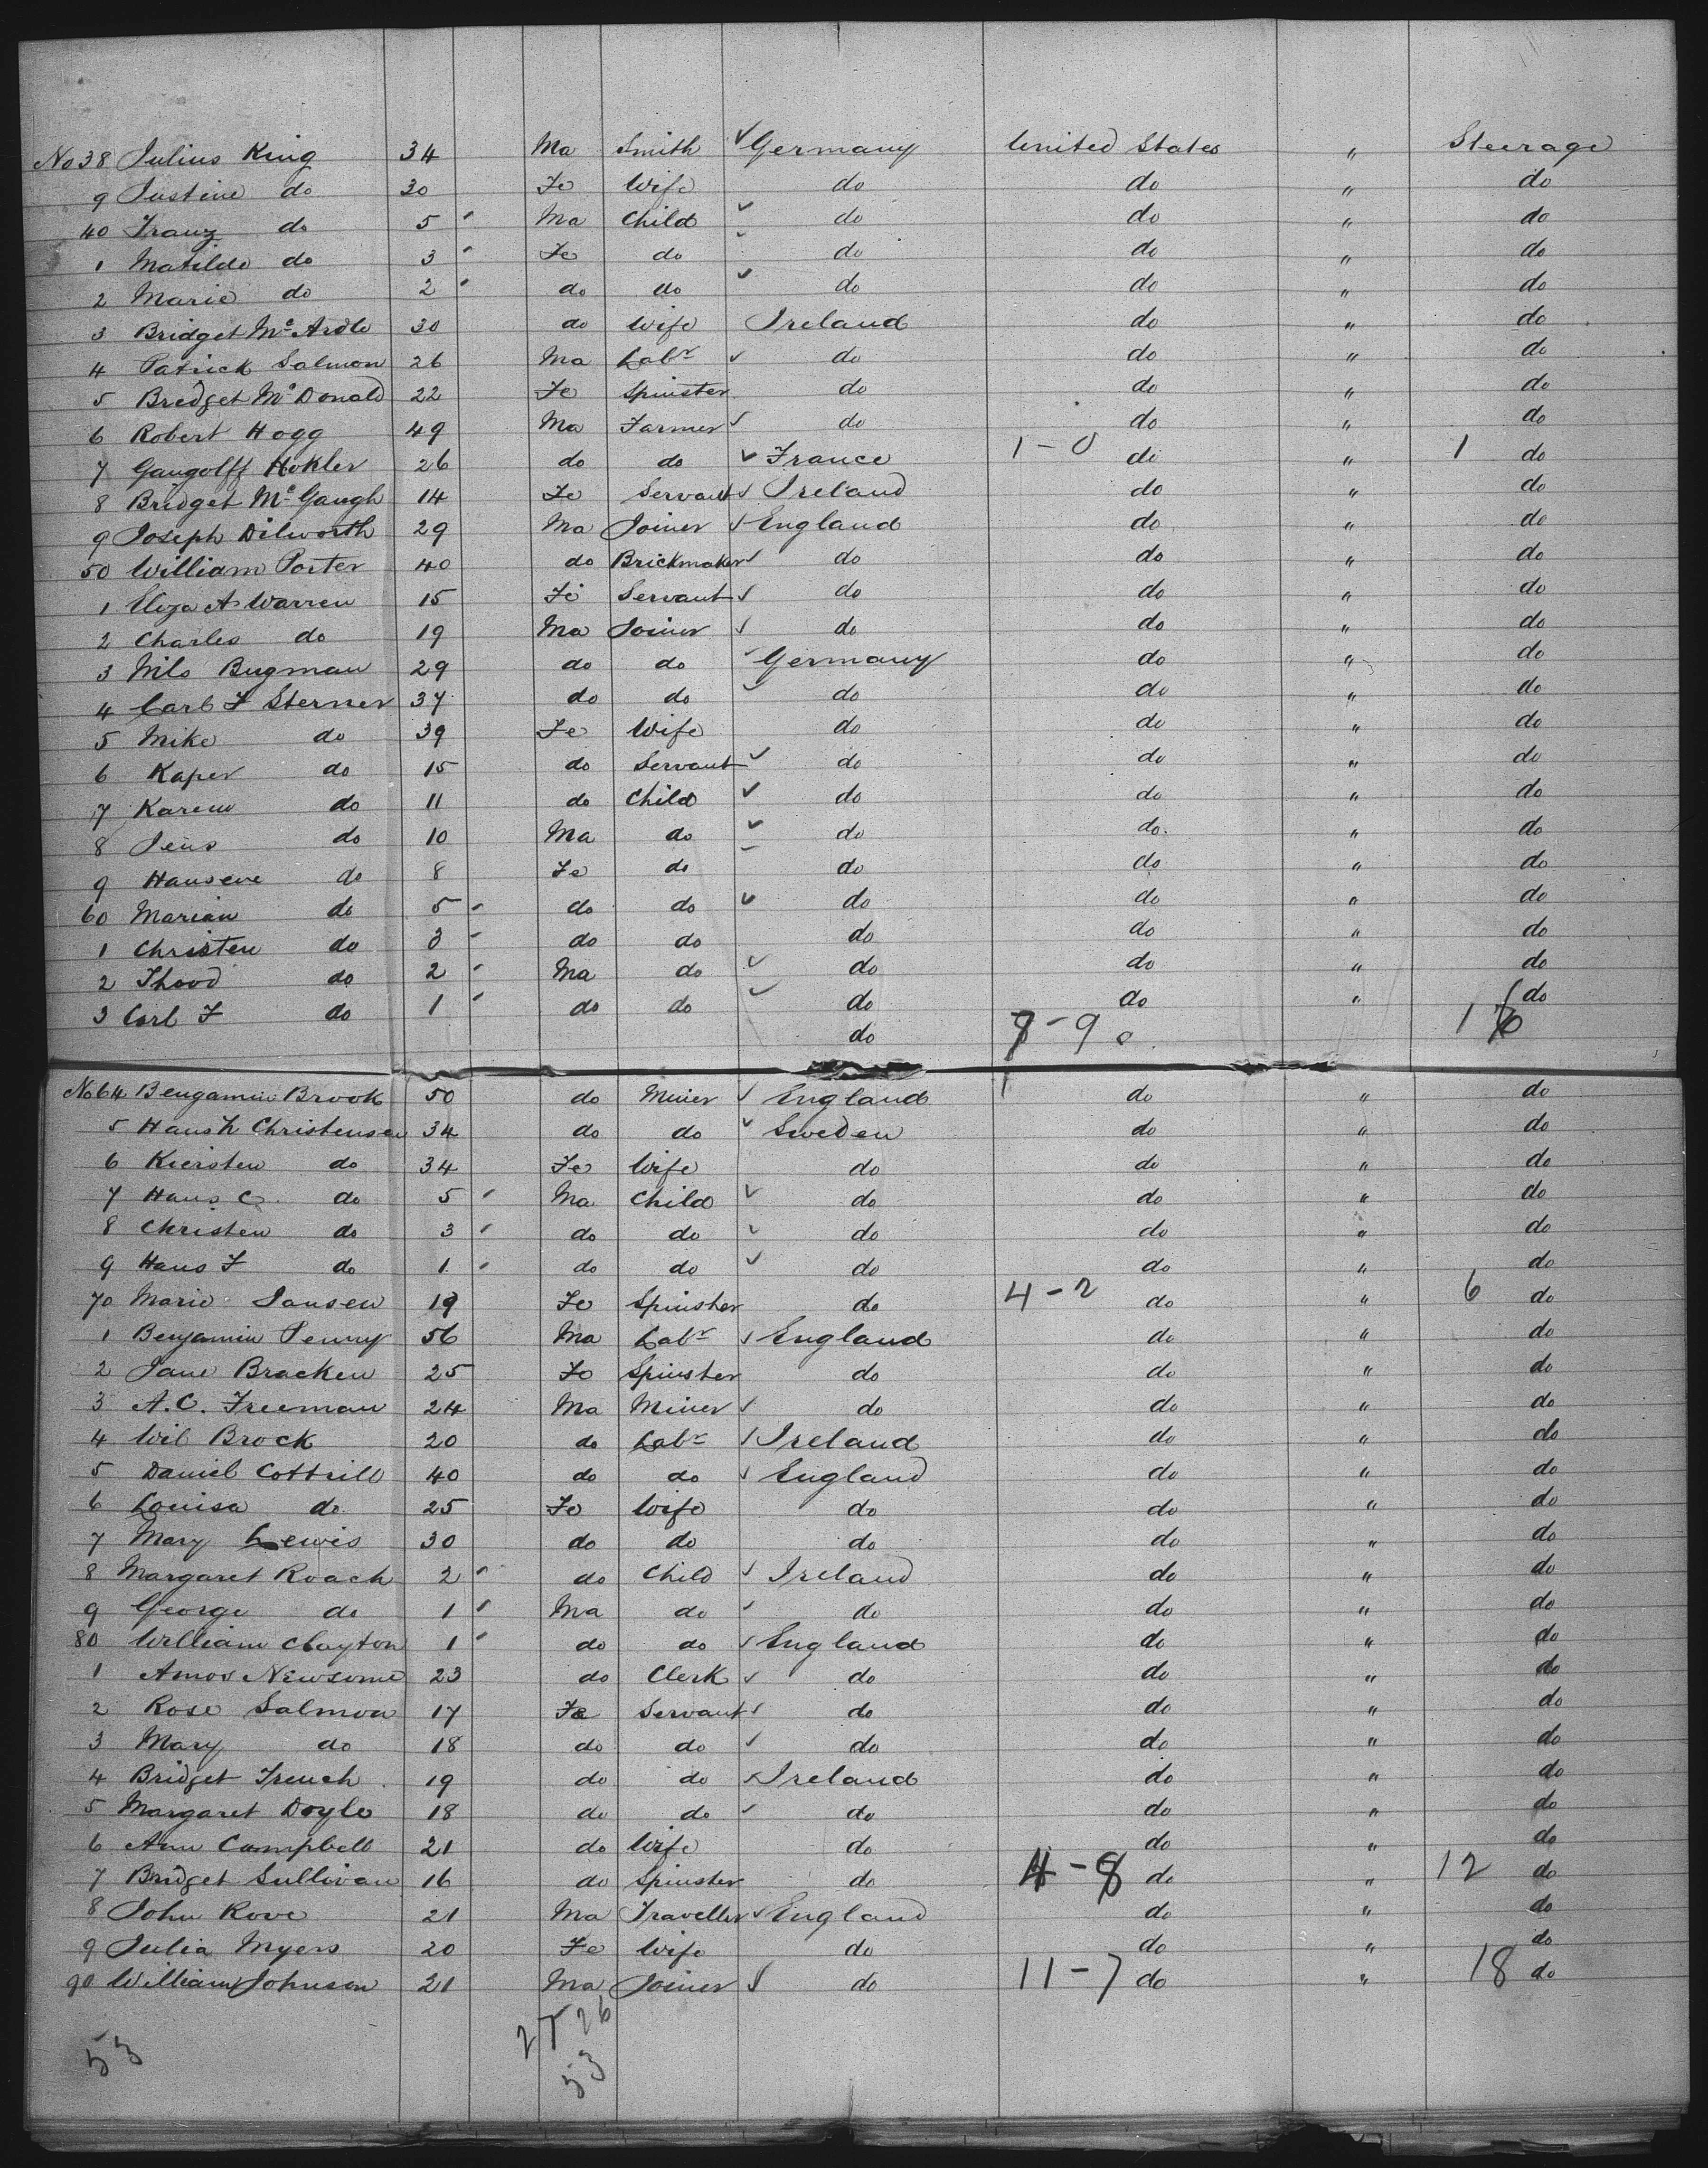 No 38 Julius King 34 Ma Smith ✓ Germany United States " Steerage
9 Justine do 30 Fe Wife do do " do
40 Franz do 5 Ma Child ✓ do do " do
1 Matilde do 3 Fe do do do " do
2 Marie do 2 do do ✓ do do " do
3 Bridget Mc Ardle 30 do Wife Ireland do " do
4 Patrick Salmon 26 Ma Labr ✓ do do " do
5 Bredget Mc Donald 22 Fe Spinster do do " do
6 Robert Hogg 49 Ma Farmer ✓ do do " do
7 Gangolff Hokler 26 do do ✓ France 1-0 do " 1 do
8 Bridget Mc Gaugh 14 Fe Servant ✓ Ireland do " do
9 Joseph Dilworth 29 Ma Joiner ✓ England do " do
50 William Porter 40 do Brickmaker ✓ do do " do
1 Eliza A Warren 15 Fe Servant ✓ do do " do
2 Charles do 19 Ma Joiner ✓ do do " do
3 Nils Bugman 29 do do ✓ Germany do " do
4 Carl F Sterner 37 do do ✓ do do " do
5 Mike do 39 Fe Wife do do " do
6 Kaper do 15 do Servant ✓ do do " do
7 Karen do 11 do Child ✓ do do " do
8 Jens do 10 Ma do ✓ do do " do
9 Hansene do 8 Fe do do do " do
60 Marian do 5 do do ✓ do do " do
1 Christen do 3 do do do do " do
2 do 2 Ma do ✓ do do " do
3 Carl F do 1 do do ✓ do do " do
do 7-9
No 64 Bengamin Brook 50 do Miner ✓ England do " do
5 Hans H Christensen 34 do do ✓ Sweden do " do
6 Kiersten do 34 Fe Wife do do " do
7 Hans C. do 5 Ma Child ✓ do do " do
8 Christen do 3 do do ✓ do do " do
9 Hans F do 1 do do ✓ do do " do
70 Marie Jansen 19 Fe Spinster do 4-2 do " 6 do
1 Benjamin Penny 56 Ma Labr ✓ England do " do
2 Jane Bracken 25 Fe Spinster do do " do
3 A.C. Freeman 24 Ma Miner ✓ do do " do
4 Wil Brock 20 do Labr ✓ Ireland do " do
5 Daniel Cottrill 40 do do ✓ England do " do
6 Louisa do 25 Fe Wife do do " do
7 Mary Lewis 30 do do do do " do
8 Margaret Roach 2 do Child ✓ Ireland do " do
9 George do 1 Ma do ✓ do do " do
80 William Clayton 1 do do ✓ England do " do
1 Amos Newsome 23 do Clerk ✓ do do " do
2 Rose Salmon 17 Fe Servant ✓ do do " do
3 Mary do 18 do do ✓ do do " do
4 Bridget French 19 do do ✓ Ireland do " do
5 Margaret Doyle 18 do do ✓ do do " do
6 Ann Campbell 21 do Wife do do " do
7 Bridget Sullivan 16 do Spinster do 4-8 do " 12 do
8 John Rove 21 Ma Traveller ✓ England do " do
9 Julia Myers 20 Fe Wife do do " do
90 William Johnson 21 Ma Joiner ✓ do 11-7 do " 18 do
27 26
53 53